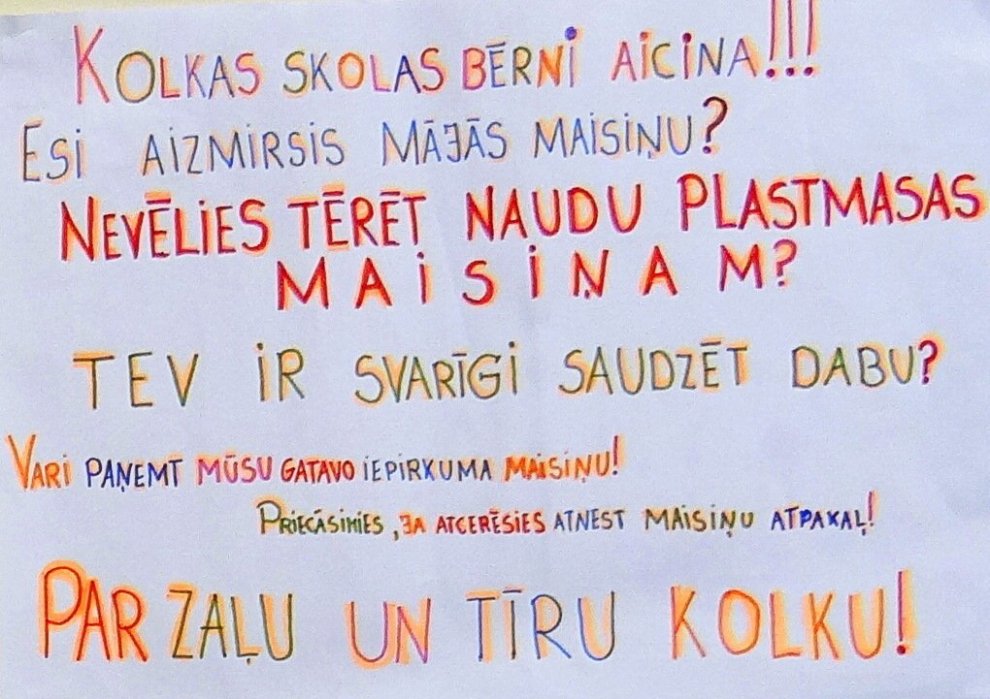 KOLKAS SKOLAS BĒRNI AICINA!!!
ESI AIZMIRSIS MĀJĀS MAISIŅU?
NEVĒLIES TĒRĒT NAUDU PLASTMASAS
MAISIŅAM?
TEV IR SVARĪGI SAUDZĒT DABU?
VARI PAŅEMT MŪSU GATAVO IEPIRKUMA MAISIŅU!
PRIECĀSIMIES, JA ATCERĒSIES ATNEST MAISIŅU ATPAKAĻ!
PAR ZAĻU UN TĪRU KOLKU!